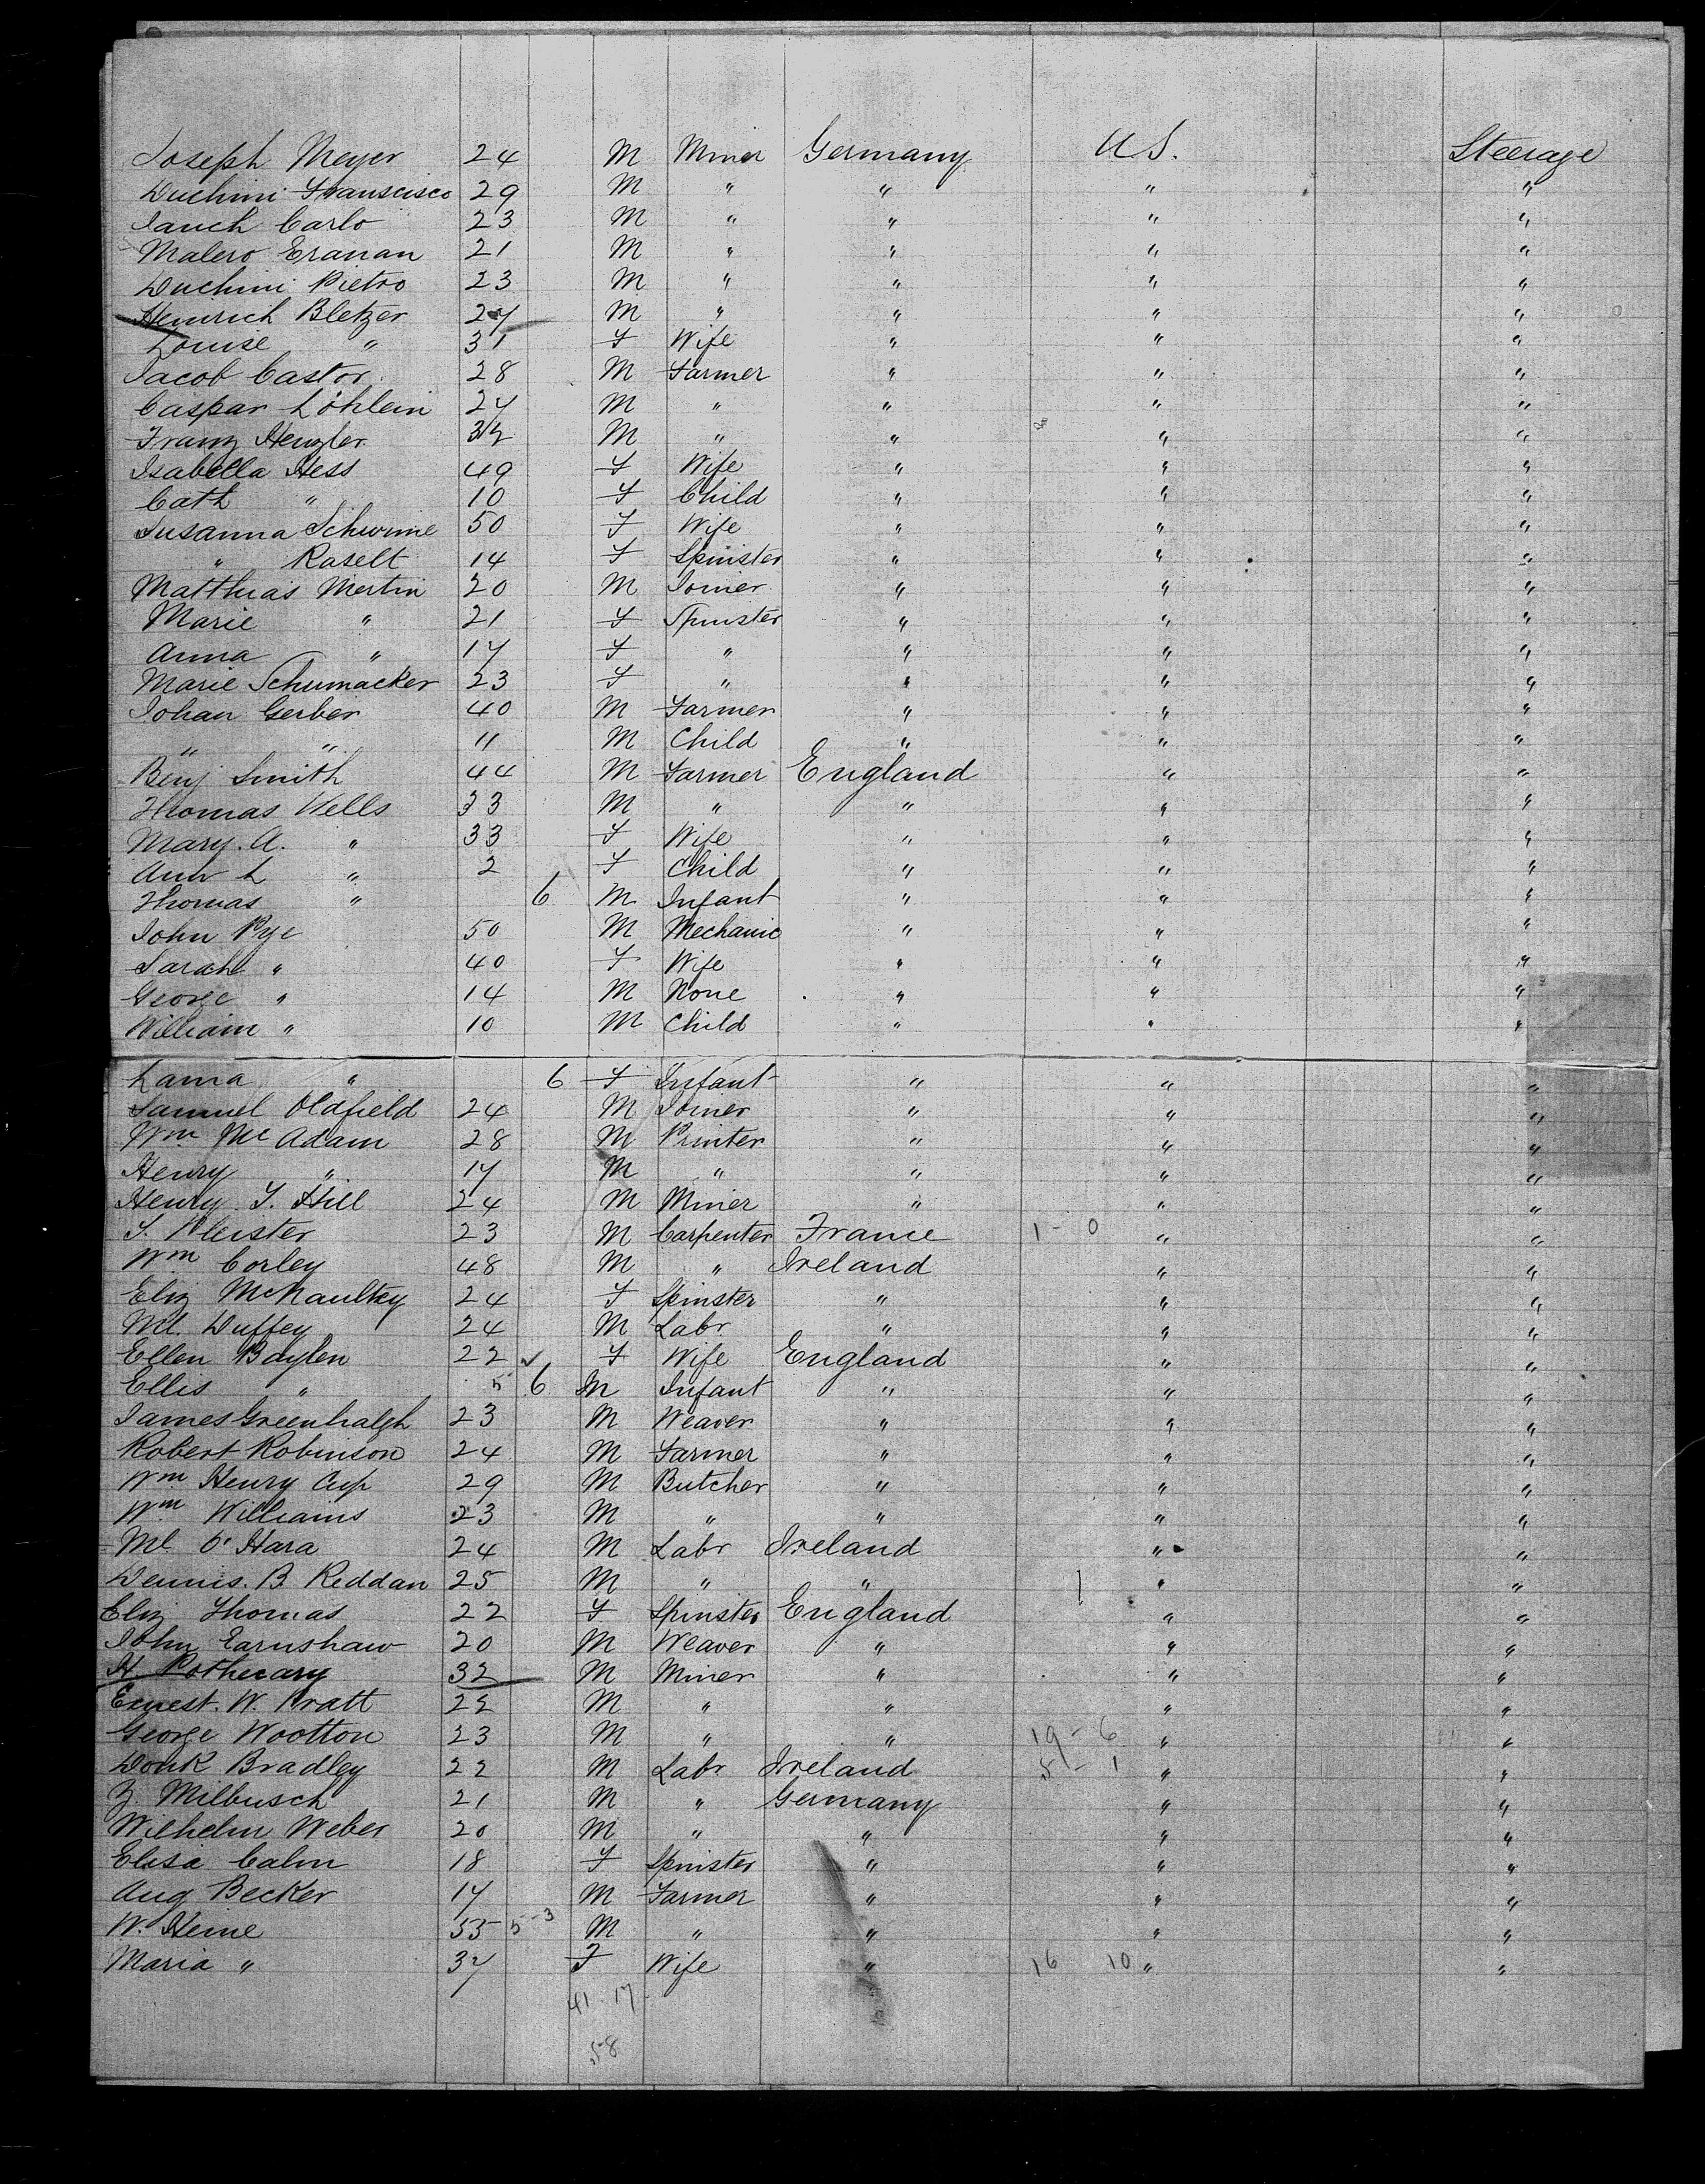 Joseph Meyer 24 M Miner Germany U.S. Steerage
Duchini Franscisco 29 M " " " "
Jauch Carlo 23 M " " " "
Malero Eranan 21 M " " " "
Duchini Pietro 23 M " " " "
Heinrich Bletzer 27 M " " " "
Louise " 31 F Wife " " "
Jacob Castor 28 M Farmer " " "
Caspar Löhlein 27 M " " " "
Franz Henzler M " " " "
Isabella Hess 49 F Wife " " "
Cath " 10 F Child " " "
Susanna Schwinne 50 F Wife " " "
" Raselt 14 F Spinster " " "
Matthias Mertin 20 M Joiner " " "
Marie " 21 F Spinster " " "
Anna " 17 F " " " "
Marie Schumacker 23 F " " " "
Johan Gerber 40 M Farmer " " "
" " 11 M Child " " "
Benj Smith 44 M Farmer England " "
Thomas Wells 33 M " " " "
Mary. A. " 33 F Wife " " "
Ann L " 2 F Child " " "
Thomas " 6 M Infant " " "
John Pye 50 M Mechanic " " "
Sarah " 40 F Wife " " "
George " 14 M None " " "
William " 10 M Child " " "
Lama " 6 F Infant " " "
Samuel Oldfield 24 M Joiner " " "
Wm McAdam 28 M Printer " " "
Henry " 17 M " " " "
Henry. T. Hill 24 M Miner " " "
T. Pleister 23 M Carpenter France 1 - 0 " "
Wm Corley 48 M " Ireland " "
Eliz McNaultey 24 F Spinster " " "
Ml. Duffey 24 M Labr " " "
Ellen Baylen 22 F Wife England " "
Ellis " 5 6 M Infant " " "
James Greenhalgh 23 M Weaver " " "
Robert Robinson 24 M Farmer " " "
Wm Henry Cup 29 M Butcher " " "
Wm Williams 23 M " " " "
Ml O'Hara 24 M Labr Ireland " "
Dennis. B Reddan 25 M " " 1 " "
Eliz Thomas 22 F Spinster England " "
John Earnshaw 20 M Weaver " " "
H. Pothecary 32 M Miner " " "
Ernest. W. Pratt 22 M " " " "
George Wootton 23 M " " 19 - 6 " "
Bradley 22 M Labr Ireland 5 - 1 " "
Z. Milbusch 21 M " Germany " "
Wilhelm Weber 20 M " " " "
Elisa Calm 18 F Spinster " " "
Aug Becker 17 M Farmer " " "
W. Heine 55 5-3 M " " " "
Maria " 37 F Wife " 16 10 " "
41 - 17
58